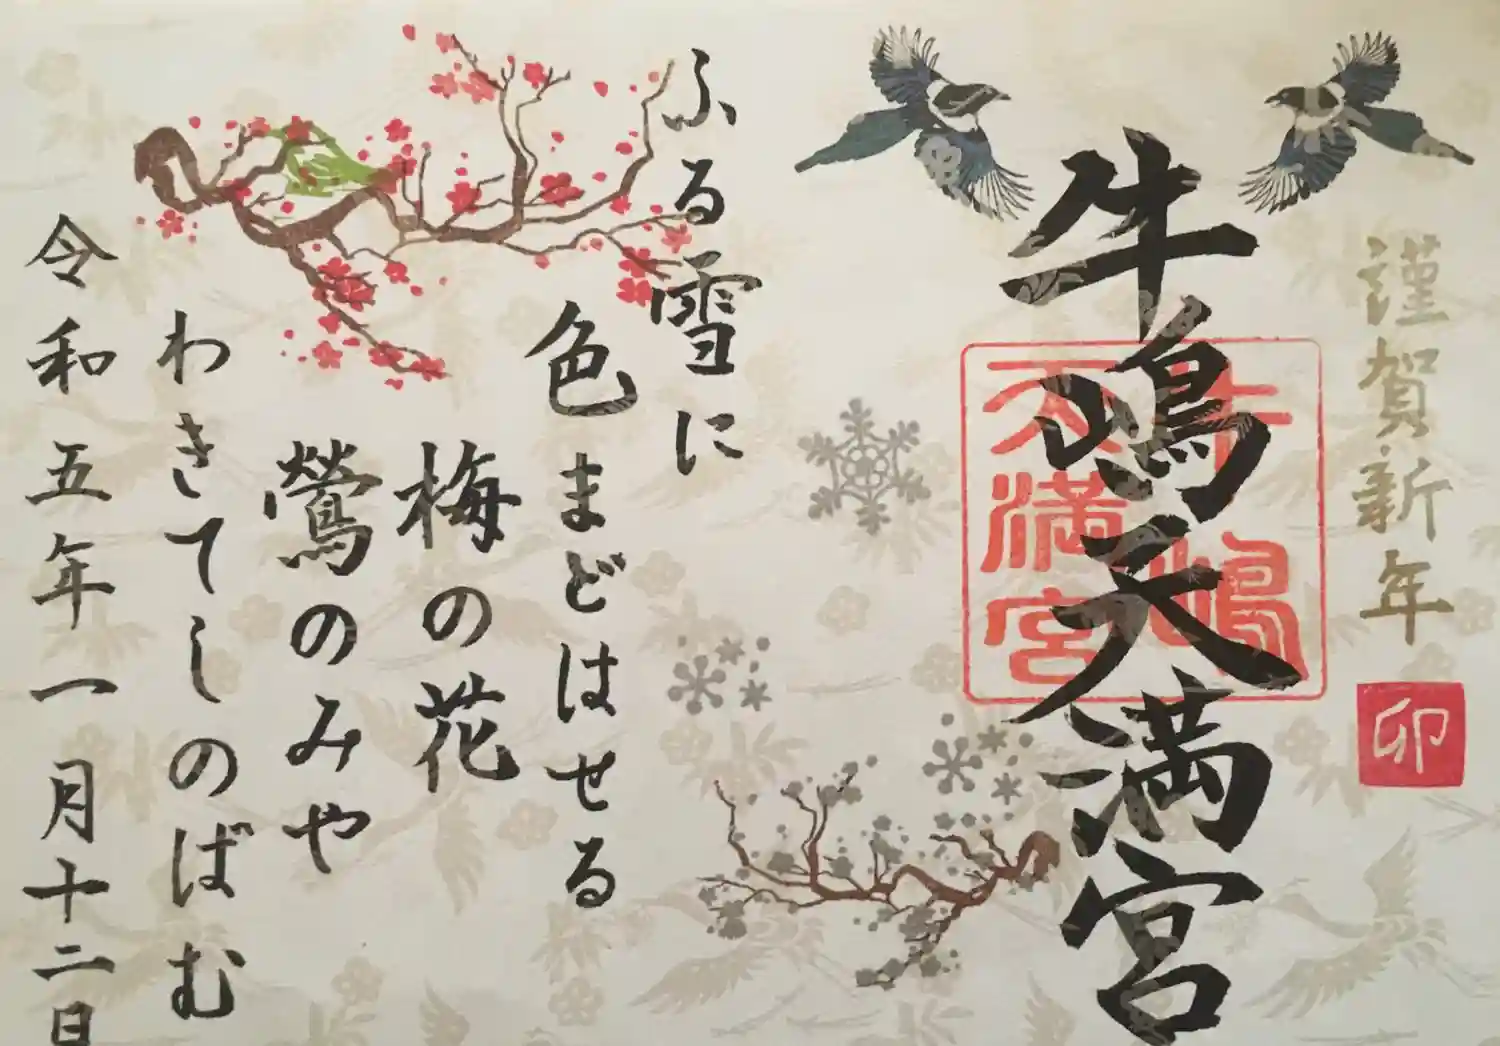 謹賀新年
卯
牛嶋天満宮
牛嶋
天満宮
ふる雪に
色まどはせる
梅の花
鶯のみや
わきてしのばむ
令和五年一月十二日